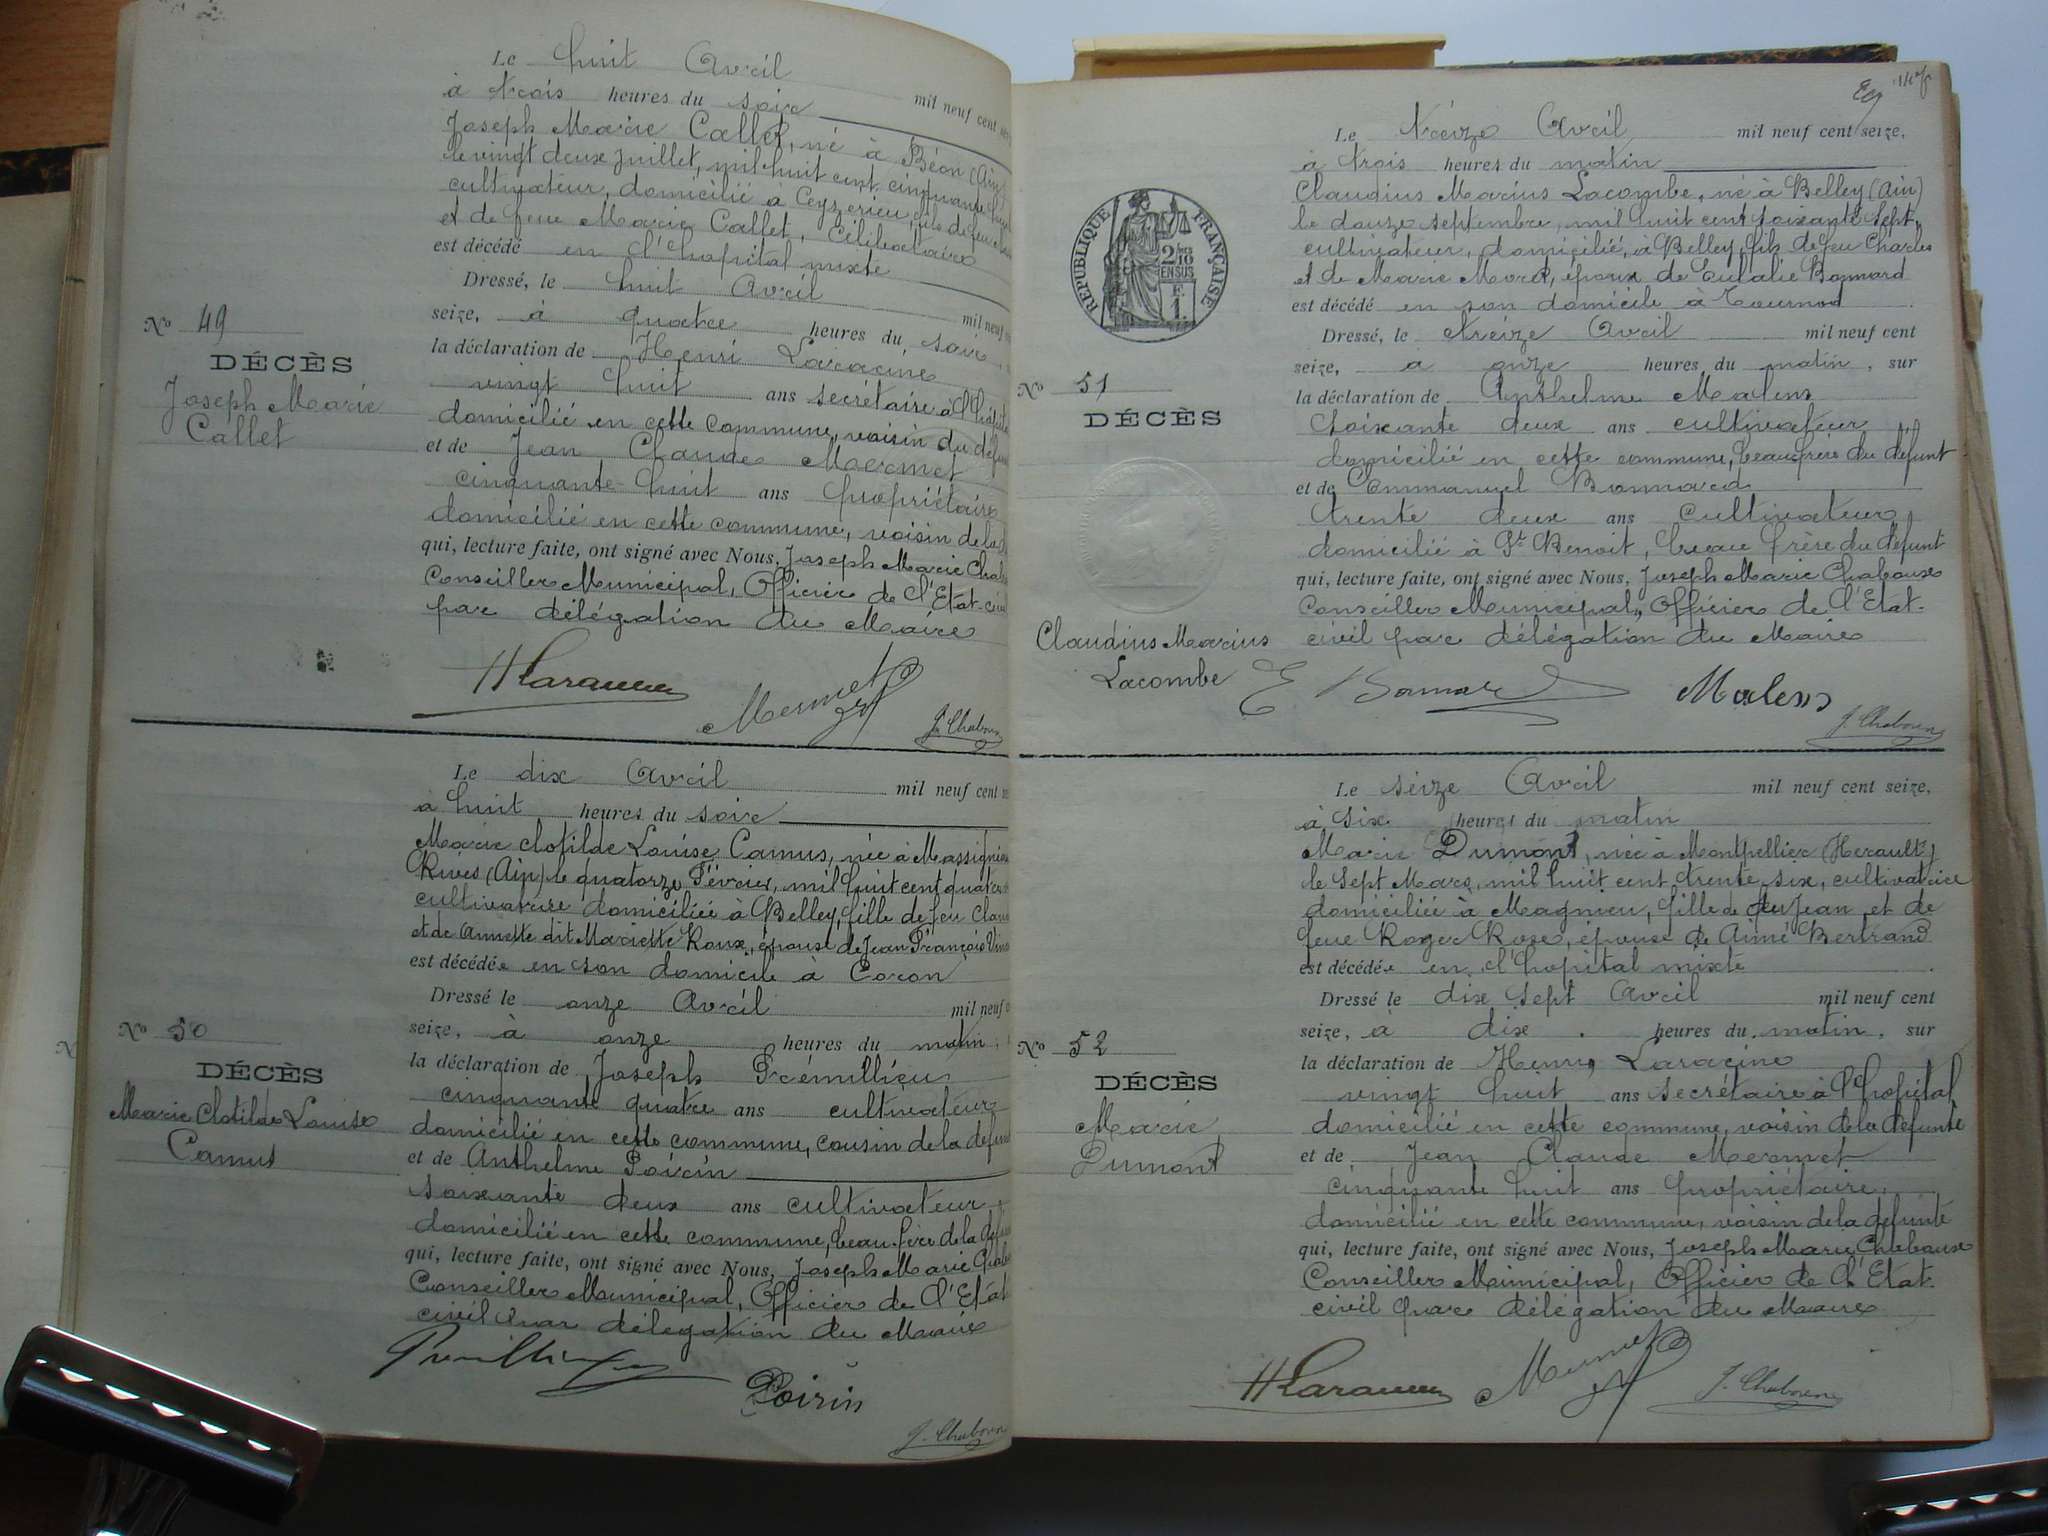 Le huit Avril mil neuf cent
à trois heures du soir
Joseph Marie Callet, né à Béon (Ain)
le vingt deux juillet, mil huit cent cinquante
cultivateur, domicilié à Ceyzerieu, fils de feu
et de feue Marie Callet, Célibataire
est décédé en l'hopital mixte
Dressé, le huit Avril mil neuf
seize, à quatre heures du soir
la déclaration de Henri Laracine
vingt huit ans secrétaire à l'
domicilié en cette commune, voisin du
et de Jean Claude Mermet
cinquante-huit ans propriétaire
domicilié en cette commune, voisin
qui, lecture faite, ont signé avec Nous, Joseph Marie
Conseiller Municipal, Officier de l'Etat-
par délégation du Maire
No 49
DÉCÈS
Joseph Marie
Callet
HLaracine
Mermet
J. Chaboux
Le dix Avril mil neuf cent
à huit heures du soir
Marie Clotilde Louise Camus, née à
Rives (Ain) le quatorze Février, mil huit cent
cultivatrice domiciliée à Belley, fille de feu
et de Annette dit Mariette Roux, épouse de Jean François
est décédée en son domicile à Coron
Dressé le onze Avril mil neuf
seize, à onze heures du matin,
la déclaration de Joseph Prémillieu
cinquante quatre ans cultivateur
domicilié en cette commune, cousin de la
et de Anthelme Poirin
soixante deux ans cultivateur
domicilié en cette commune, beau-frère de la
qui, lecture faite, ont signé avec Nous, Joseph Marie
Conseiller Municipal, Officier de l'Etat
civil par délégation du Maire
No 50
DÉCÈS
Marie Clotilde Louise
Camus
Poirin
J. Chaboux
Le treize Avril mil neuf cent seize,
à trois heures du matin
Claudius Marius Lacombe, né à Belley (Ain)
le douze septembre, mil huit cent soixante sept,
cultivateur, domicilié, à Belley, fils de feu Charles
et de Marie Morel, époux de Eulalie Bonnard
est décédé en son domicile à
Dressé, le treize Avril mil neuf cent
seize, à onze heures du matin, sur
la déclaration de Anthelme Malens
soixante deux ans cultivateur,
domicilié en cette commune, beau frère du défunt
et de Emmanuel Bonnard
trente deux ans cultivateur,
domicilié à St Benoit, beau frère du défunt
qui, lecture faite, ont signé avec Nous, Joseph Marie Chaboux
Conseiller Municipal, Officier de l'Etat-
civil par délégation du Maire
RÉPUBLIQUE FRANÇAISE
2/10
EN SUS
F.
1.
No 51
DÉCÈS
Claudius Marius
Lacombe
E Bonnard
Malens
J. Chaboux
Le seize Avril mil neuf cent seize,
à six heures du matin
Marie Dumont, née à Montpellier (Herault)
le sept Mars, mil huit cent trente six, cultivatrice
domiciliée à Magnieu, fille de feu Jean et de
feue Roger Rose, épouse de Aimé Bertrand
est décédée en l'hopital mixte
Dressé le dix sept Avril mil neuf cent
seize, à dix heures du matin, sur
la déclaration de Henry Laracine
vingt huit ans secrétaire à l'hopital
domicilié en cette commune, voisin de la défunte
et de Jean Claude Mermet
cinquante huit ans propriétaire,
domicilié en cette commune, voisin de la défunte
qui, lecture faite, ont signé avec Nous, Joseph Marie Chaboux
Conseiller Municipal, Officier de l'Etat-
civil par délégation du Maire
No 52
DÉCÈS
Marie
Dumont
HLaracine
Mermet
J. Chaboux